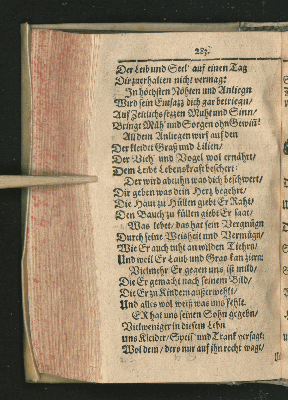 285.
Der Leib und Seel' auf einen Tag
Dir zuerhalten nicht vermag:
In höchsten Nöhten und Anliegen
Wird sein Entsatz dich gar betriegn/
Auf Zeitlichs setzen Muht und Sinn/
Bringt Müh' und Sorgen ohn Gewiñ!
All dein Anliegen wirf auf den
Der kleidet Graß und Lilien/
Der Vieh' und Vogel wol ernährt/
Dem Lebenskraft beschert:
Der wird abtuhn was dich beschwert/
Dir geben was dein Hertz begehrt/
Die Haut zu Hüllen giebt Er Raht/
Den Bauch zu füllen giebt Er Saat/
Was lebet/ das hat sein Vergnügn
Durch seine Weisheit und Vermügn/
Wie Er auch ruht an wilden Tiehrn/
Und weil Er Laub und Gras kan ziern;
Vielmehr Er gegen uns ist mild/
Die Er gemacht nach seinem Bild/
Die Er zu Kindern außerwehlt/
Und alles wol weiß was uns fehlt.
ER hat uns seinen Sohn gegebn/
Vielweniger in diesem Lebn
uns Kleider/ Speis' und Trank versagt;
Wol dem/ der's nur auf ihn recht wagt/